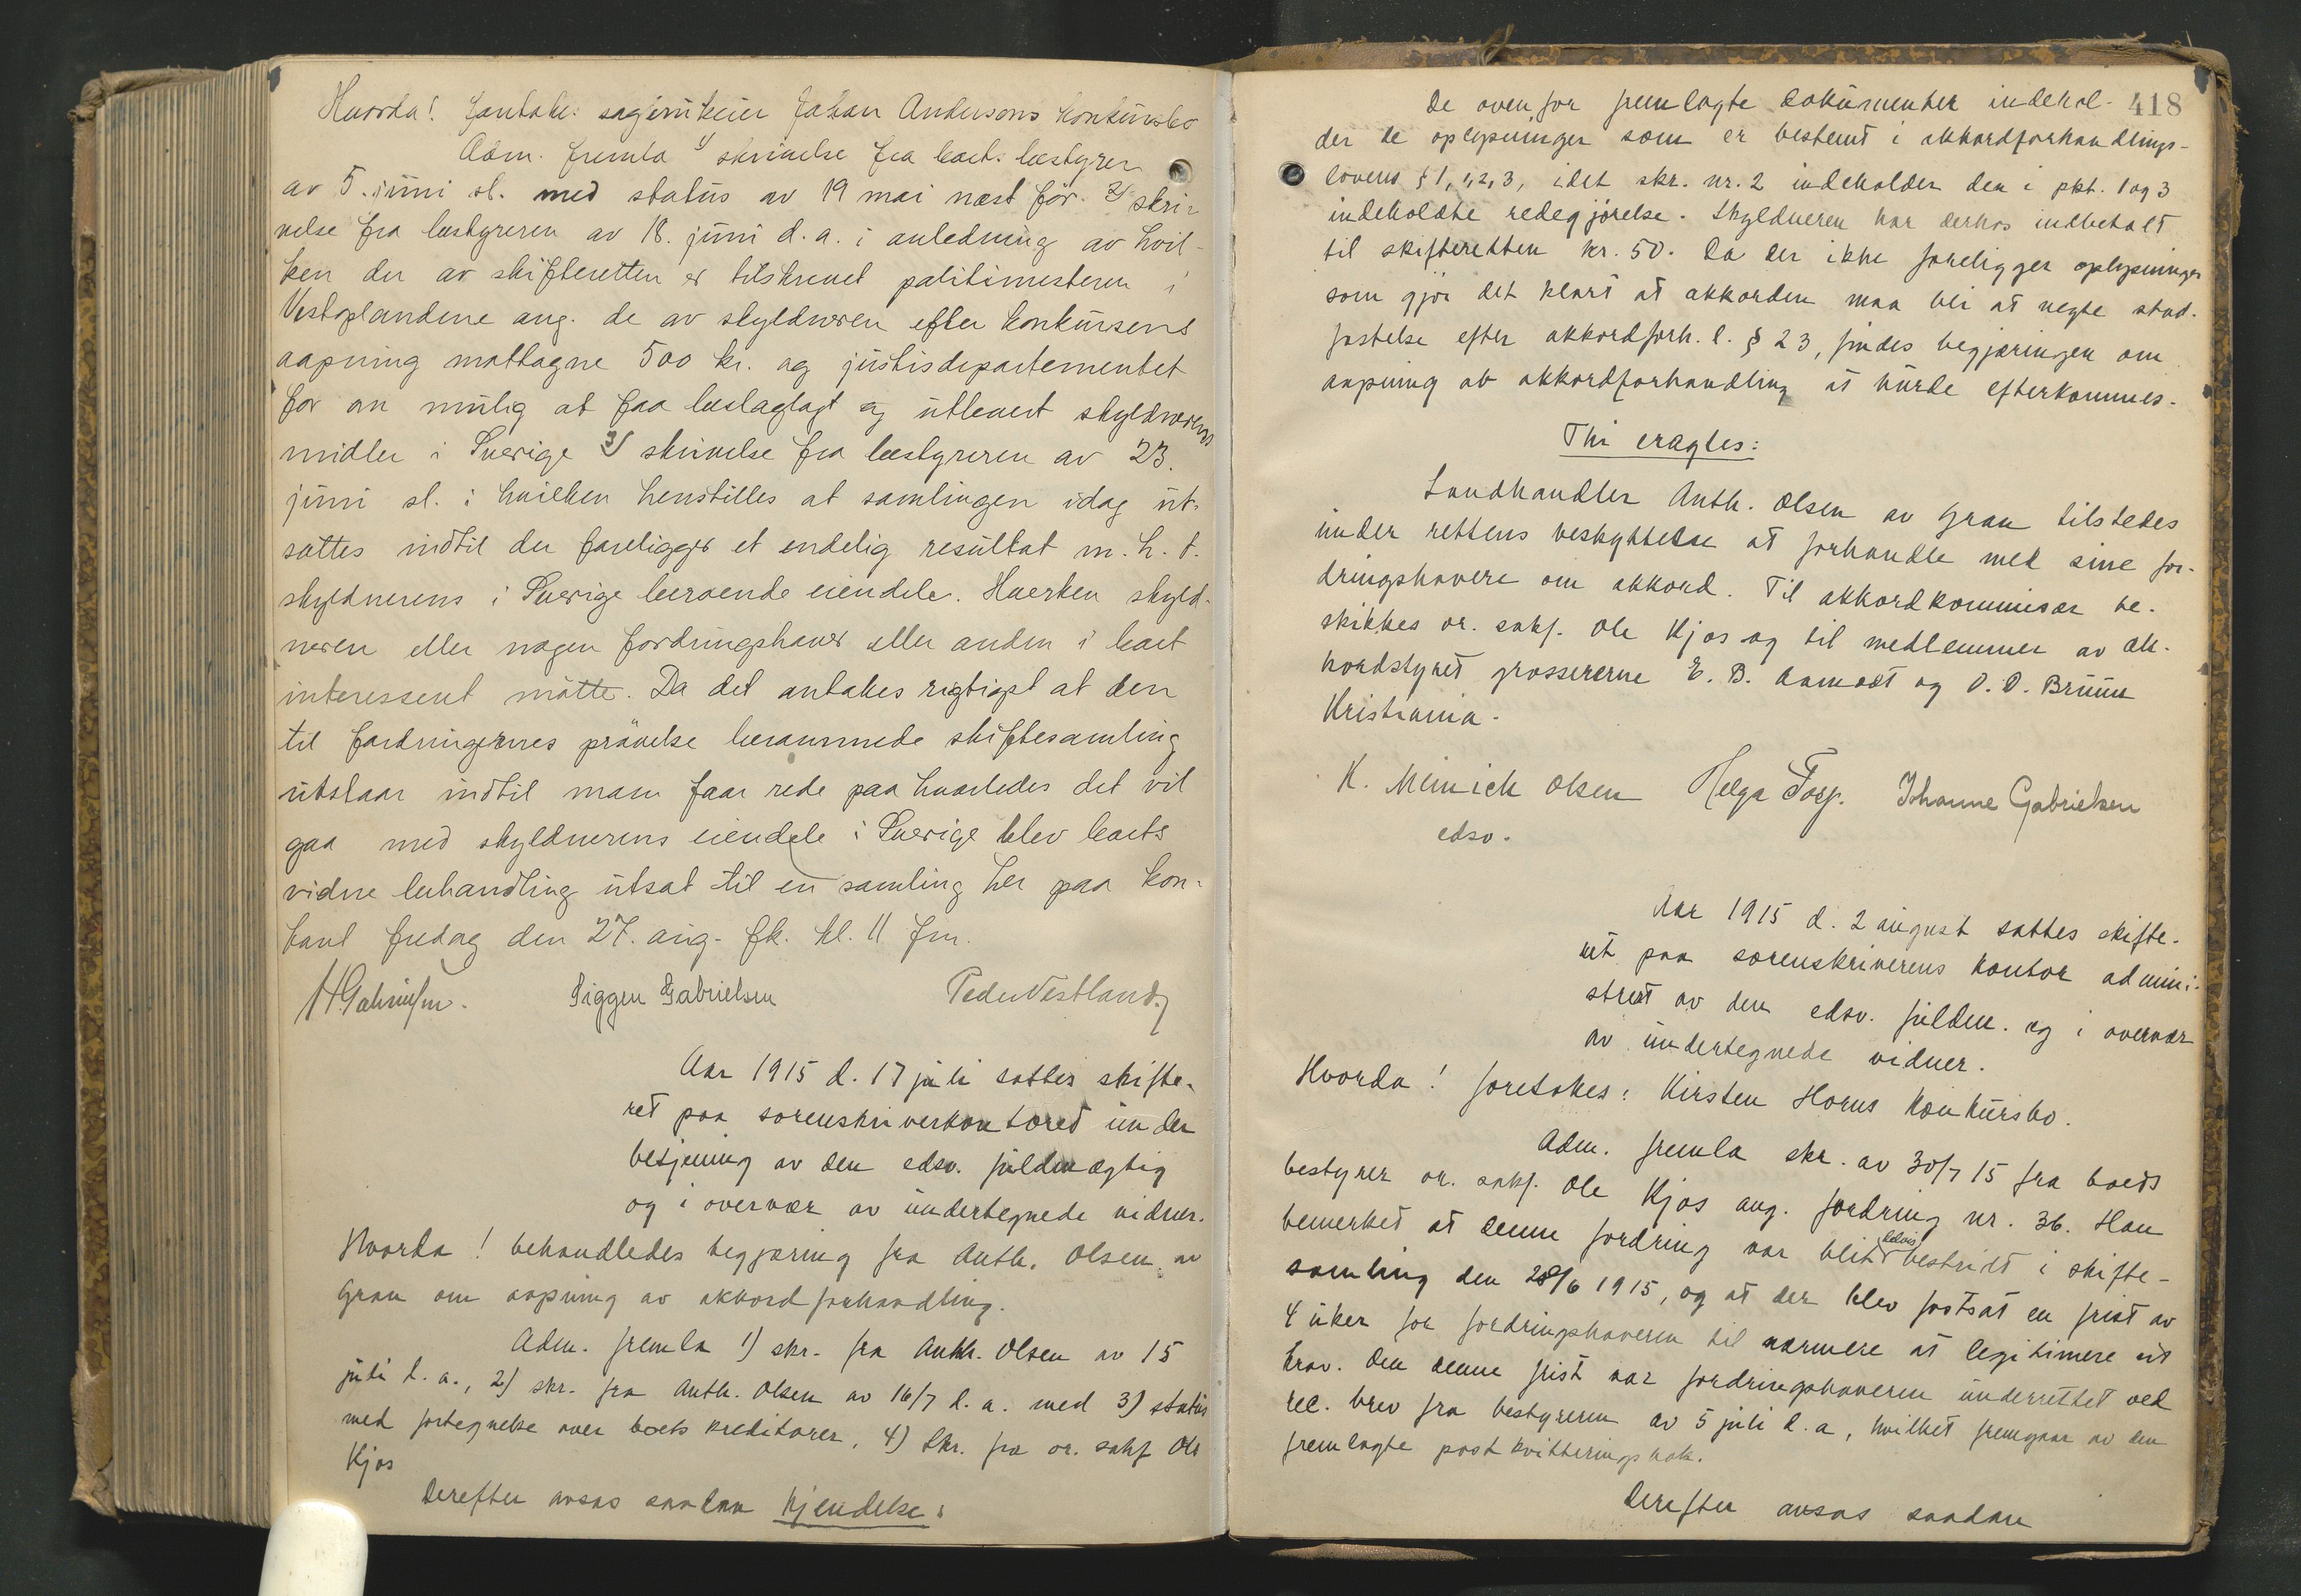 Hvorda! Foretake: sagbrukeier Johan Andersons konkursbo
Adm. fremla 1) skrivelse fra boets bestyrer
av 5. juni sl. med status av 19 mai næst før. 2) skri-
velse fra bestyreren av 18. juni d.a. i anledning av hvil-
ken der av skifteretten er tilskrevet politimesteren i
Vestoplandene ang. de av skyldneren efter konkursens
aapning mottagne 500 kr. og justisdepartementet
for om mulig at faa beslaglagt og utlevert skyldnerens
midler i Sverige 3) skrivelse fra bestyreren av 23.
juni sl. i hvilken henstilles at samlingen idag ut-
sættes indtil der foreligger et endelig resultat m.h.t.
skyldnerens i Sverige beroende eiendele. Hverken skyld-
neren eller nogen fordringshaver eller anden i boet
interessent møtte. Da det antakes rigtigst at den
til fordringernes prøvelse berammede skiftesamling
utstaar indtil man faar rede paa hvorledes det vil
gaa med skyldnerens eiendele i Sverige blev boets
videre behandling utsat til en samling her paa kon-
toret fredag den 27. aug. fk. kl. 11 fm.
Siggen Gabrielsen Peder Vestland
Aar 1915 d. 17 juli sattes skifte-
ret paa sorenskriverkontoret under
betjening av den edsv. fuldmægtig
og i overvær av undertegnede vidner.
Hvorda! behandledes begjæring fra Anth. Olsen av
Gran om aapning av akkordforhandling.
Adm. fremla 1) skr. fra Anth. Olsen av 15
juli d.a., 2) skr. fra Anth. Olsen av 16/7 d.a. med 3) status
med fortegnelse over boets kreditorer, 4) Skr. fra or. sakf Ole
Kjos
Derefter avsas saadan Kjendelse:
418
De ovenfor fremlagte dokumenter indehol-
der de oplysninger som er bestemt i akkordforhandlings-
lovens § 1, 1,2,3, idet skr. nr. 2 indeholder den i pkt. 1 og 3
indeholdte redegjørelse. Skyldneren har derhos indbetalt
til skifteretten kr. 50. Da der ikke foreligger oplysninger
som gjør det klart at akkorden maa bli at negte stad-
fæstelse efter akkordforh. l. § 23, findes begjæringen om
aapning av akkordforhandling at burde efterkommes.
Thi eragtes:
Landhandler Anth. Olsen av Gran tilstedes
under rettens beskyttelse at forhandle med sine for-
dringshavere om akkord. Til akkordkommisær be-
skikkes or. sakf. Ole Kjos og til medlemmer av ak-
kordstyret grossererne E. B. Aamodt og O. O. Bruun
Kristiania.
K. Meinich Olsen Helga Torp. Johanne Gabrielsen
edsv.
Aar 1915 d. 2 august sattes skifte-
ret paa sorenskriverens kontor admini-
stret av den edsv. fuldm. og i overvær
av undertegnede vidner.
Hvorda! foretokes: Kirsten Horns konkursbo.
Adm. fremla skr. av 30/7 15 fra boets
bestyrer or. sakf. Ole Kjos ang. fordring nr. 36. Han
bemerket at denne fordring var blit delvis bestridt i skifte-
samling den 28/6 1915, og at der blev fastsat en frist av
4 uker for fordringshaveren til nærmere at legitimere sit
krav. Om denne frist var fordringshaveren underrettet ved
rec. brev fra bestyreren av 5 juli d.a, hvilket fremgaar av den
fremlagte postkvitteringsbok.
Derefter avsas saadan